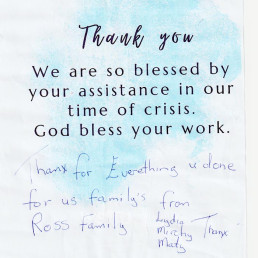 Thank you
We are so blessed by
your assistance in our
time of crisis.
God bless your work.
Thanx for Everything u done
for us family's from
Ross Family
Lydia
Thanx